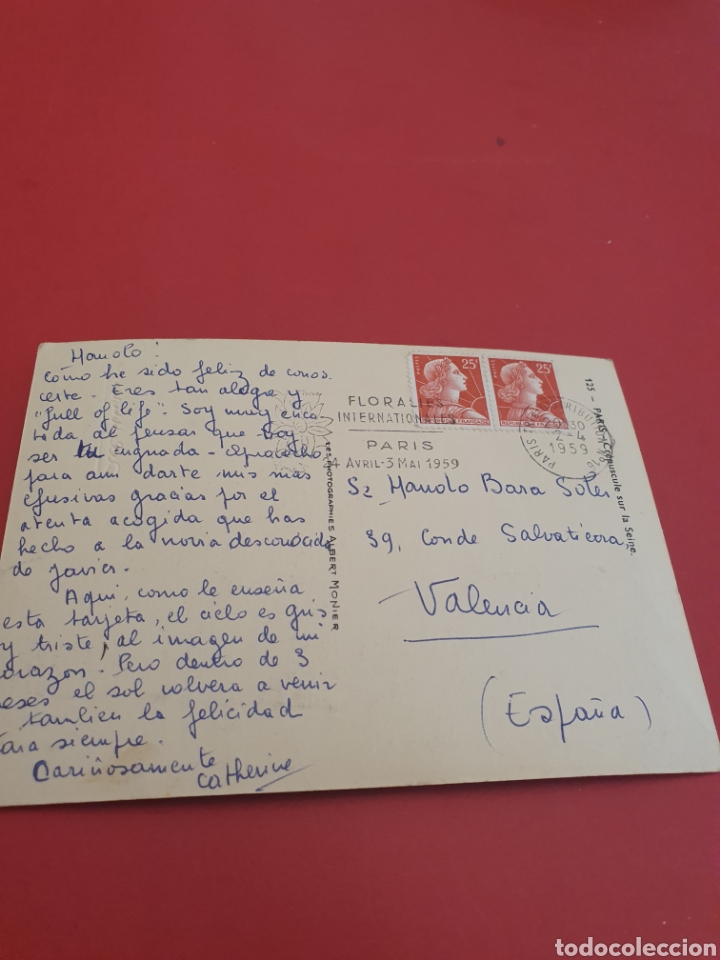 Manolo!
Como he sido feliz de conos
certe. Eres tan alegre y
"full of life". Soy muy enca
tada de pensar que voy
ser tu cuguada.
para ami darte mis mas
efusivas gracias por el
atenta acogida que has
hecho a la novia desconocida
de Javier.
Aqui, como le enseña
esta tarjeta, el cielo es gris
y triste, al imagen de mi
orazon. Pero dentro de 3
eses el sol volvera a venir
tambien la felicidad
ara siempre.
Cariñosamente
Catherine
LES PHOTOGRAPHIES ALBERT MONIER
FLORALIES
INTERNATIONALES
PARIS
4 AVRIL-3 MAI 1959
25F
25F
30
2-4
1959
PARIS
125 - PARIS. Crépuscule sur la Seine.
Sr Manolo Bara Soler
39, Conde Salvatierra
Valencia
(España)
todocoleccion